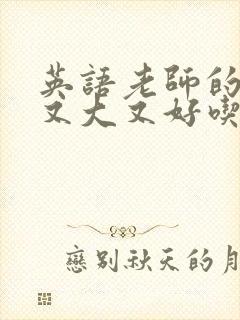 英語老師的
又大又好喫
戀別秋天的月